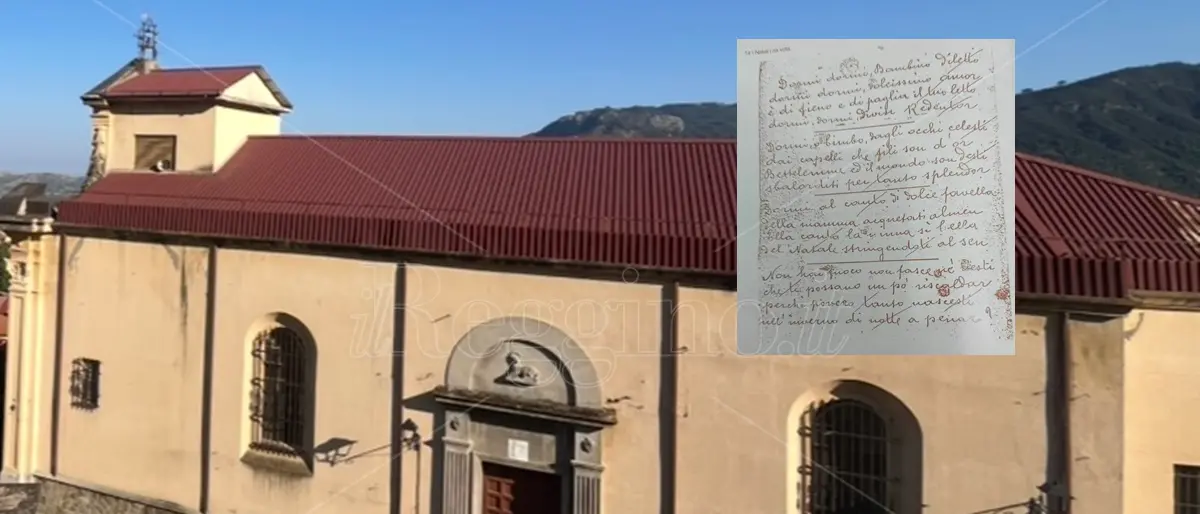 Dormi dormi, Bambino diletto
dormi dormi, dolcissimo amor
è di fieno e di paglia il tuo letto
dormi, dormi, divin Redentor
Dormi, o bimbo, dagli occhi celesti
dai capelli che fili son d'or
Betlemme ed il mondo son desti
sbalorditi per tanto splendor
Dormi al canto di dolce favella
della mamma acquetati almen
ella canta la ninna sì bella
del Natale stringendoti al sen
Non hai fuoco non fasce nè vesti
che ti possano un pò riscaldar
perchè povero tanto nascesti
nell'inverno di notte a penar?
ilReggino.it